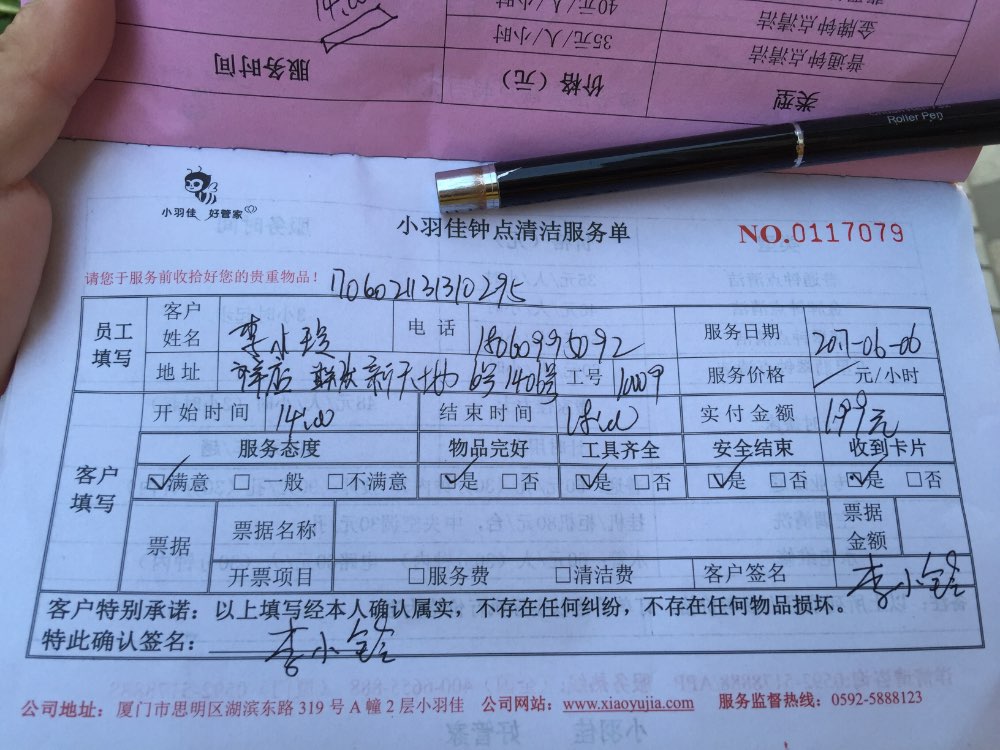 40元/人/小时
金牌钟点清洁
35元/人/小时
普通钟点清洁
服务时间 价格（元） 类型
Roller Pen
小羽佳 好管家
小羽佳钟点清洁服务单
NO.0117079
请您于服务前收拾好您的贵重物品！
1706021131310295
员工填写 客户姓名 李小玲 电话 18060995092 服务日期 2017-06-06
地址 新天地 6号1406号 工号 10009 服务价格 元/小时
客户填写 开始时间 14:00 结束时间 18:00 实付金额 199元
服务态度 物品完好 工具齐全 安全结束 收到卡片
☑满意 □一般 □不满意 ☑是 □否 ☑是 □否 ☑是 □否 ☑是 □否
票据 票据名称 票据金额
开票项目 □服务费 □清洁费 客户签名 李小铃
客户特别承诺：以上填写经本人确认属实，不存在任何纠纷，不存在任何物品损坏。
特此确认签名：李小铃
公司地址：厦门市思明区湖滨东路319号A幢2层小羽佳 公司网站：www.xiaoyujia.com 服务监督热线：0592-5888123